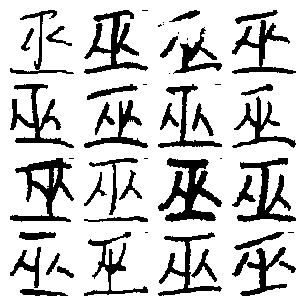 巫巫巫巫
巫巫巫巫
巫巫巫巫
巫巫巫巫